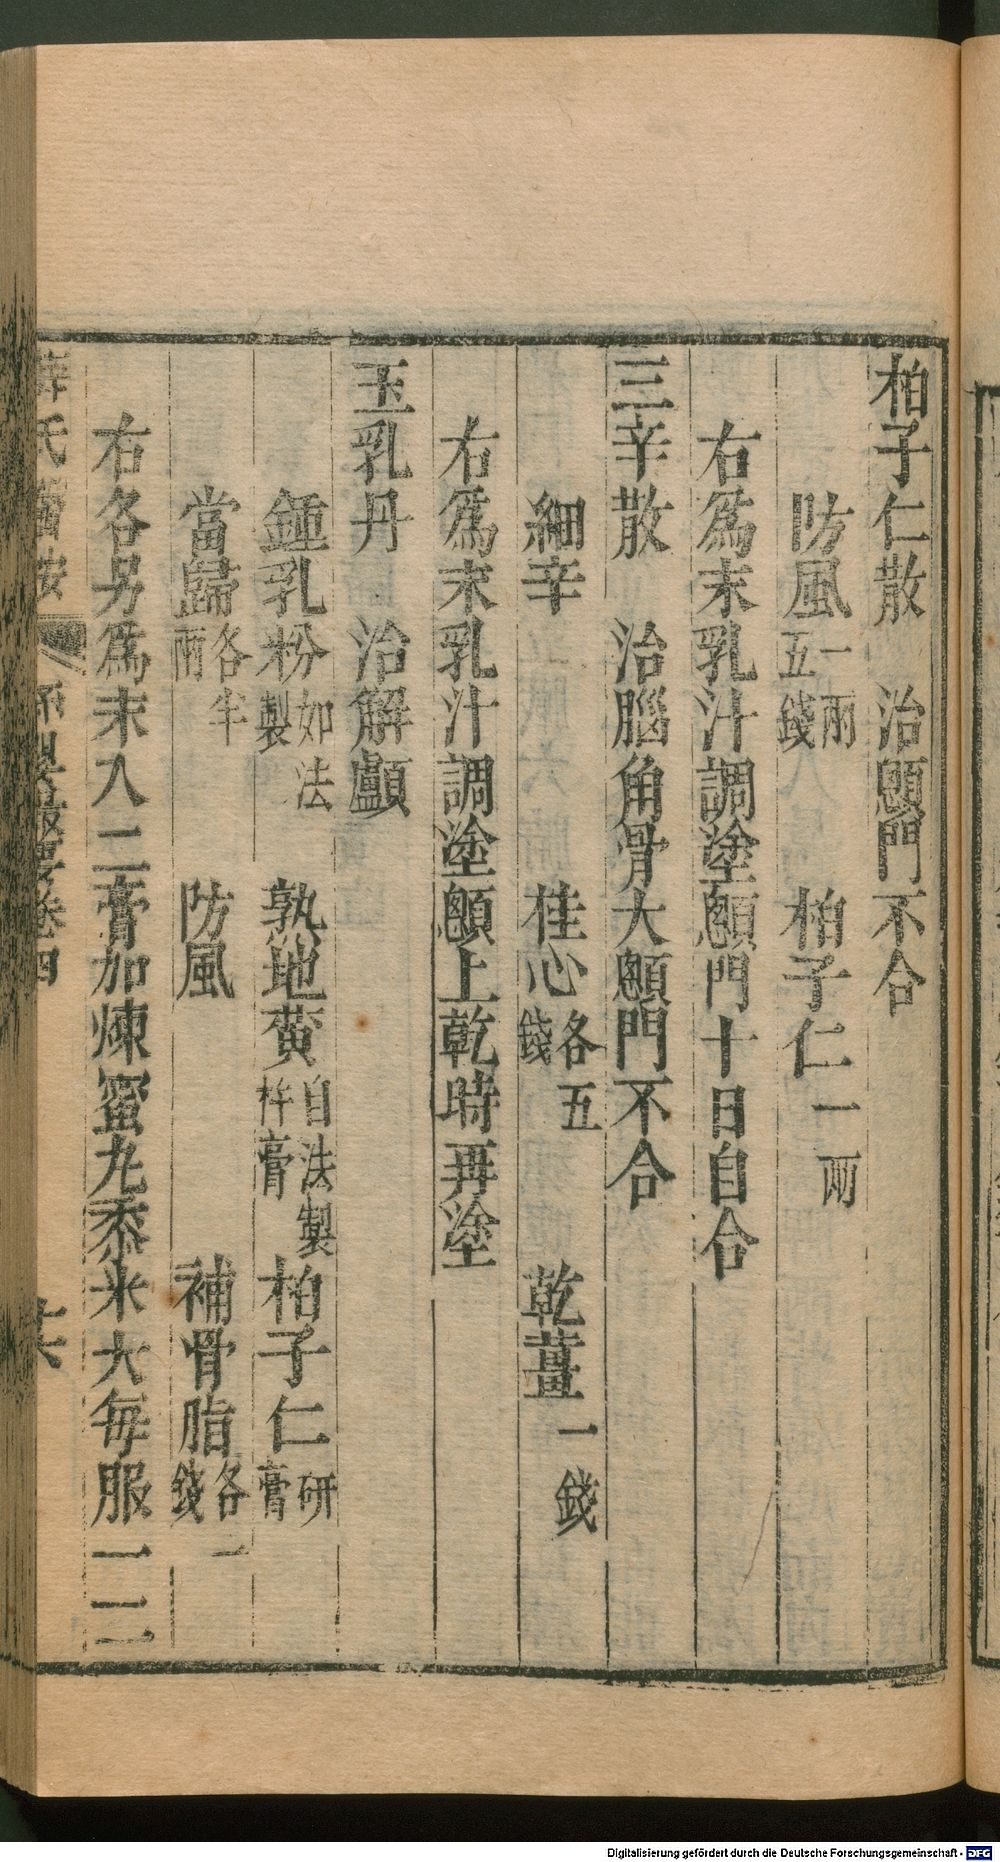 柏子仁散　治顖門不合
防風一兩五錢　柏子仁一兩
右為末乳汁調塗顖門十日自合
三辛散　治腦角骨大顖門不合
細辛　桂心各五錢　乾薑一錢
右為末乳汁調塗顖上乾時再塗
玉乳丹　治解顱
鍾乳粉如法製　熟地黄自法製杵膏　柏子仁研膏
當歸各半兩　防風　補骨脂各一錢
右各另為末入二膏加煉蜜丸黍米大每服一二
薛氏醫按　保嬰撮要卷四　六
Digitalisierung gefördert durch die Deutsche Forschungsgemeinschaft - DFG